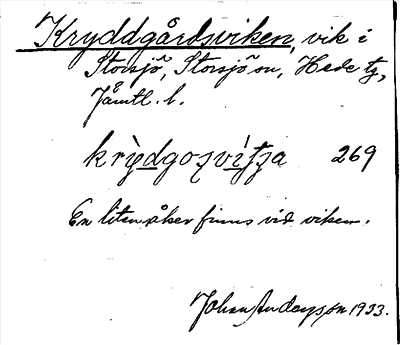 Kryddgårdsviken, vik i
Storsjö, Storsjö sn, Hede tg,
Jämtl. l.
krỳdgoʂvìtʃa 269
En liten åker finns vid viken.
Johan Andersson 1933.